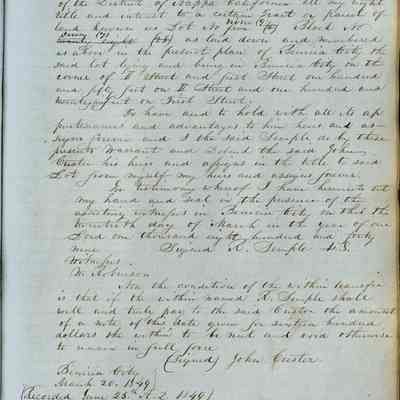 of the District of Nappa California all my right
title and interest to a certain Tract or Parcel of
land known as Lot No five (5) Block No
as shown in the present plan of Benicia City the
said lot lying and being in Benicia City on the
corner of II Street and first Street one hundred
and fifty feet on II Street and one hundred and
twentyeight on First Street.
To have and to hold with all its ap
purtenances and advantages to him heirs and as-
signs forever and I the said Semple do by these
presents warrant and defend the said John
Custer his heirs and assigns in the title to said
Lot from myself my heirs and assigns forever.
In testimony whereof I have hereunto set
my hand and seal in the presence of the
assisting witness in Benicia City on this the
twentieth day of March in the year of our
Lord one thousand eight hundred and forty
nine Signed R. Semple L.S.
Witness
W. Robinson
Now the condition of the within transfer
is that if the within named R. Semple shall
well and truly pay to the said Custer the amount
of a note of this date given for sixteen hundred
dollars the within to be null and void otherwise
to remain in full force
(Signed) John Custer
Benicia City
March 20. 1849
(Recorded June 25th A.D. 1849)